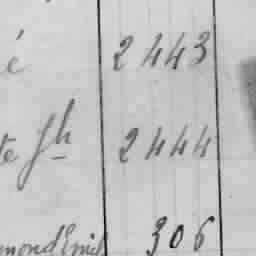 é 2443
te Jh 2444
mond Emil 306